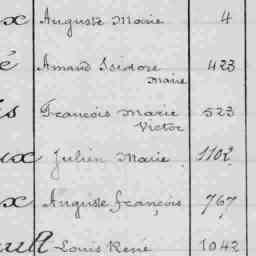 x Auguste Marie 4
é Amand Isidore 423
Marie
is François Marie 523
Victor
ux Julien Marie 1102
x Auguste françois 767
ault Louis René 1042